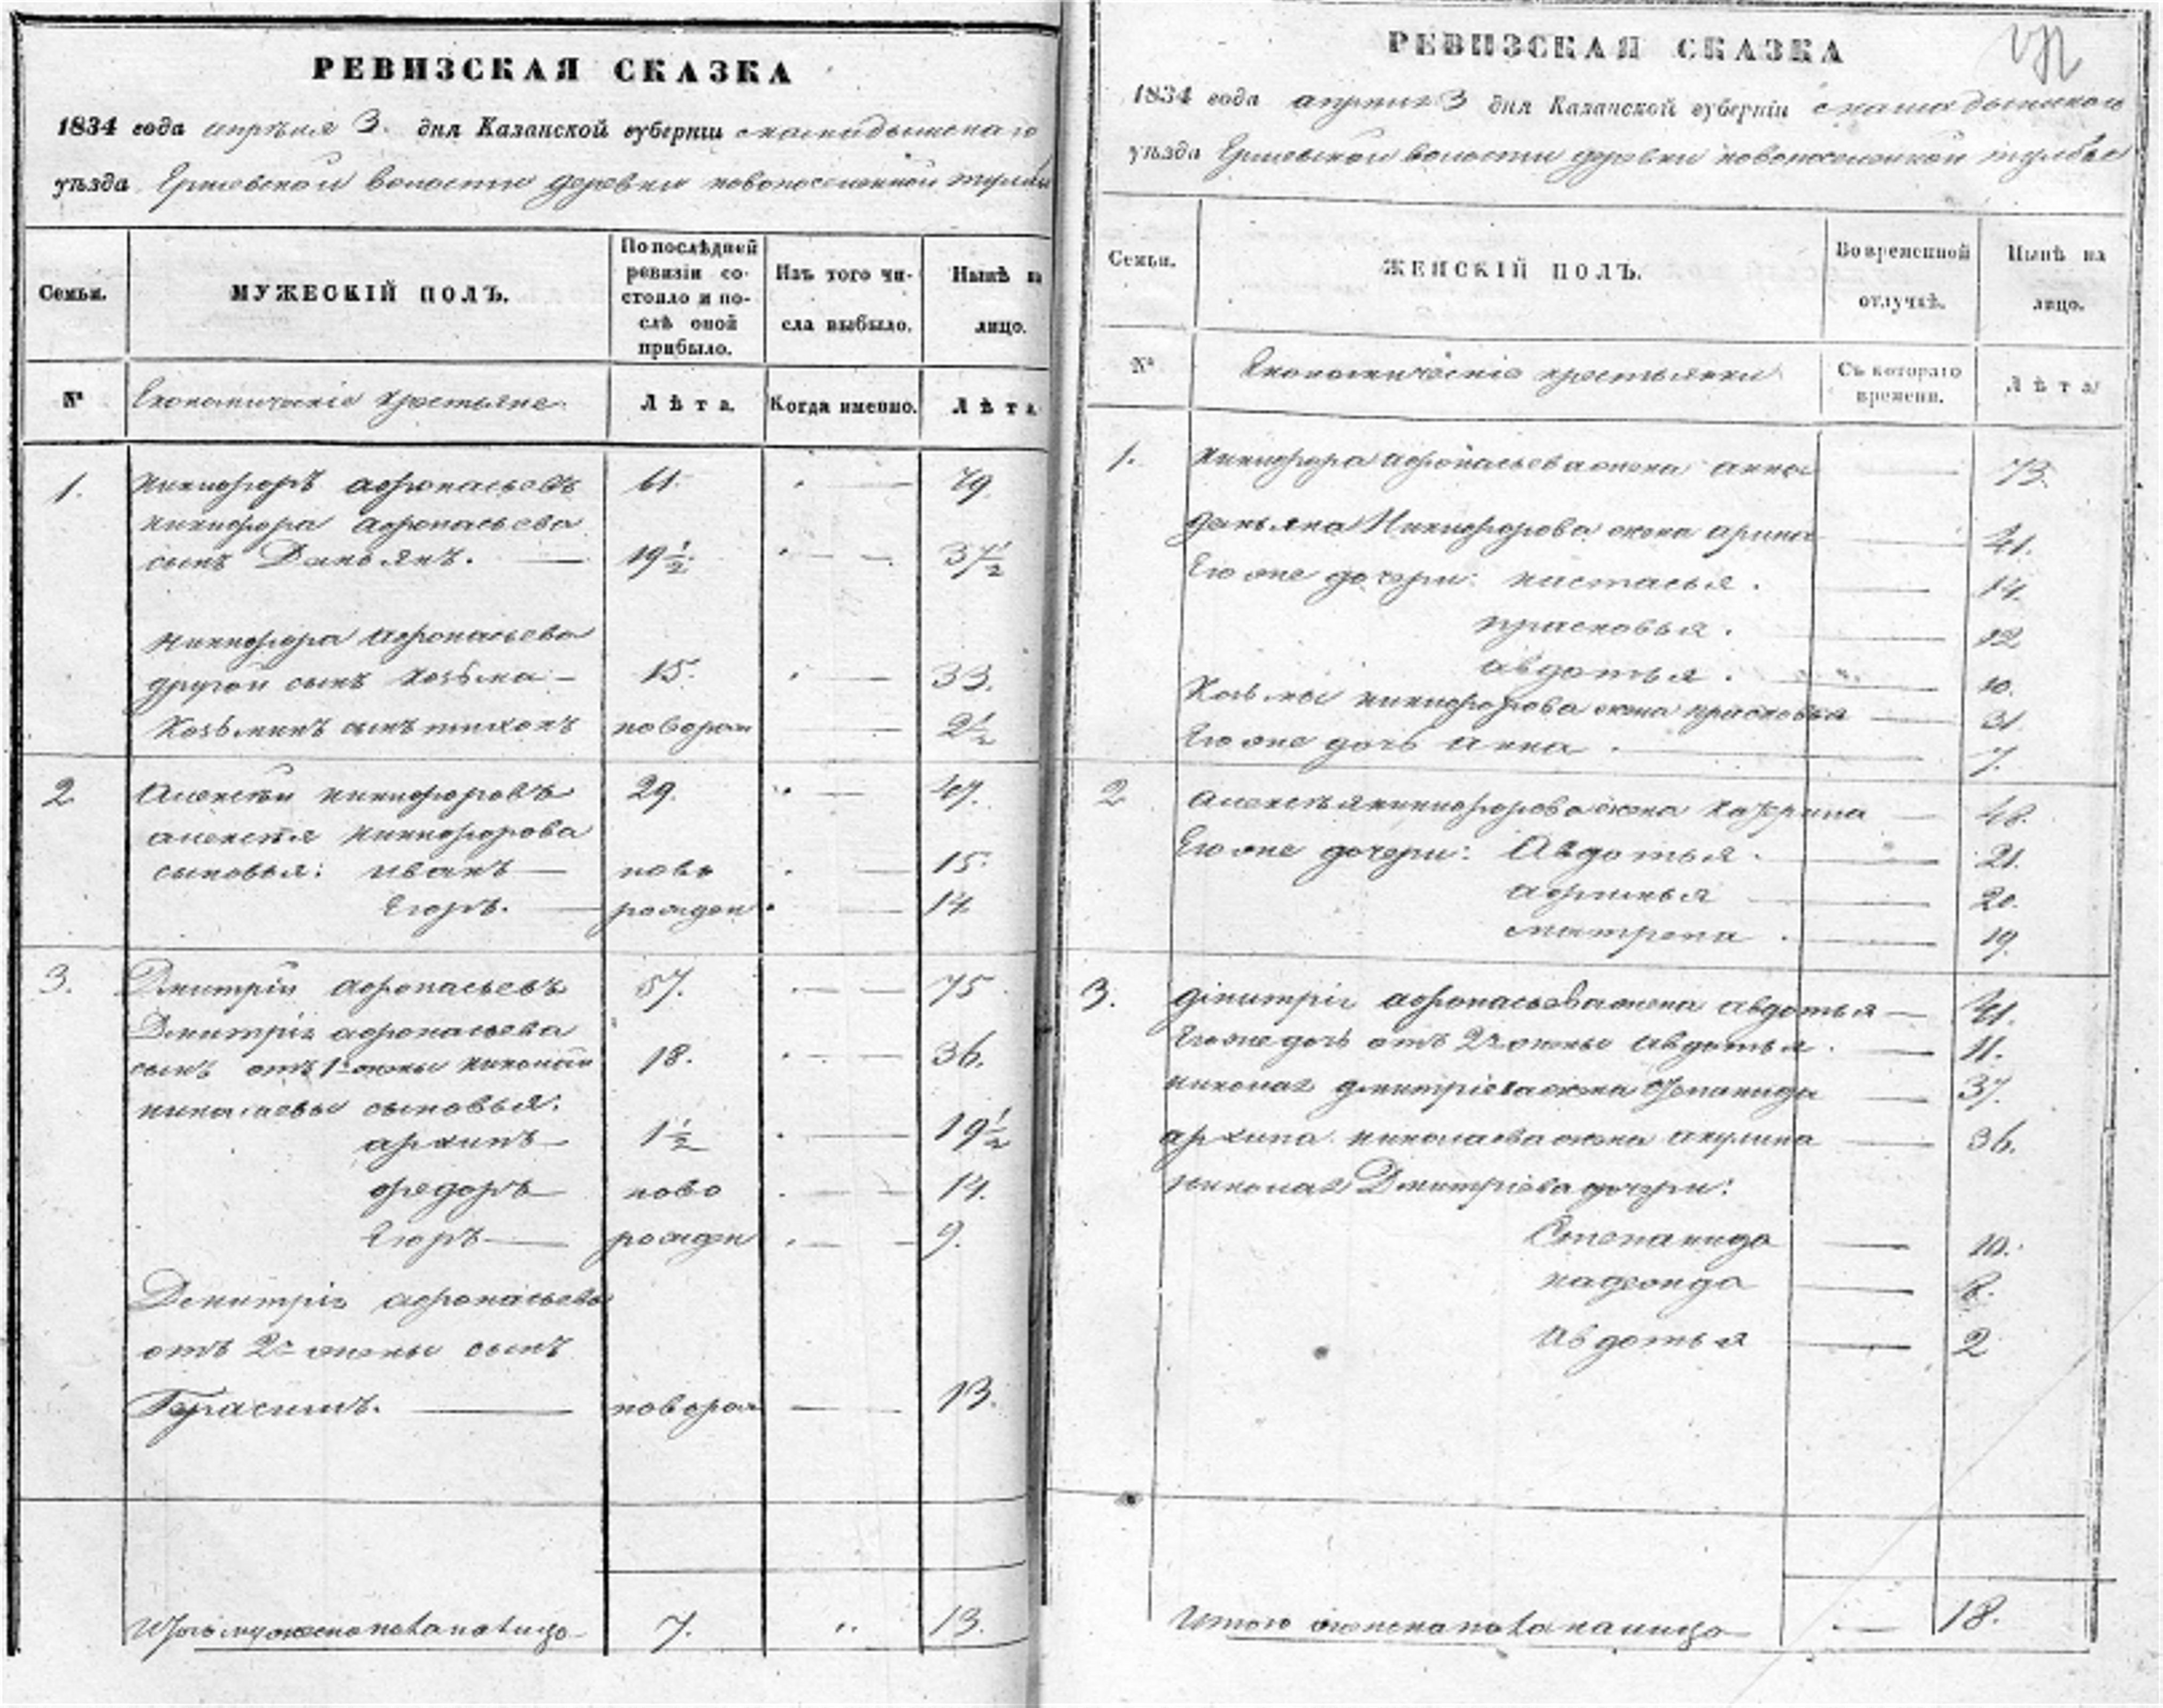 РЕВИЗСКАЯ СКАЗКА
1834 года апрѣля 3. дня Казанской губерніи
уѣзда Ершовской волости деревни новопоселенной
Семьи.
МУЖЕСКІЙ ПОЛЪ.
По послѣдней
ревизіи со-
стояло и по-
слѣ оной
прибыло.
Изъ того чи-
сла выбыло.
Нынѣ на
лицо.
№
Економическіе крестьяне
Лѣта.
Когда именно.
Лѣта
1. Никифоръ Афонасьевъ 61. 79.
Никифора Афонасьева
сынъ Даньянъ. 19½ 37½
Никифора Афонасьева
другой сынъ Козьма 15. 33.
Козьминъ сынъ тихонъ новорож 2½
2 Алексѣй никифоровъ 29. 47.
алексѣя никифорова
сыновья: иванъ ново 15.
Егоръ. рожден 14
3. Дмитрій Афонасьевъ 57. 75
Дмитрія афонасьева
сынъ отъ 1й жены николай 18. 36.
николаевы сыновья:
архипъ 1½ 19½
федоръ ново 14.
Егоръ рожден 9.
Дмитрія афонасьева
отъ 2й жены сынъ
Герасимъ. новорож 13.
Итого мужеска пола на лицо 7. 13.
РЕВИЗСКАЯ СКАЗКА
1834 года апреля 3 дня Казанской губерніи
уѣзда Ершовской волости деревни новопоселенной
Семьи.
ЖЕНСКІЙ ПОЛЪ.
Во временной
отлучкѣ.
Нынѣ на
лицо.
№
Економическіе крестьянки
Съ котораго
времени.
Лѣта
1. Никифора афонасьева жена анна 73.
даньяна Никифорова жена арина 41.
Его же дочери: настасья. 14.
прасковья. 12
авдотья. 10.
Козьмы никифорова жена прасковья 31.
Его же дочь анна. 7.
2 Алексѣя никифорова жена катерина 48.
Его же дочери: Авдотья. 21.
афимья 20.
матрена. 19.
3. дімитрія афонасьева жена авдотья 41.
Его же дочь отъ 2й жены авдотья. 11.
николая дмитріева жена 37.
архипа николаева жена акулина 36.
николая Дмитріева дочери:
Степанида 10.
надежда 8.
Авдотья 2
Итого женска пола на лицо 18.